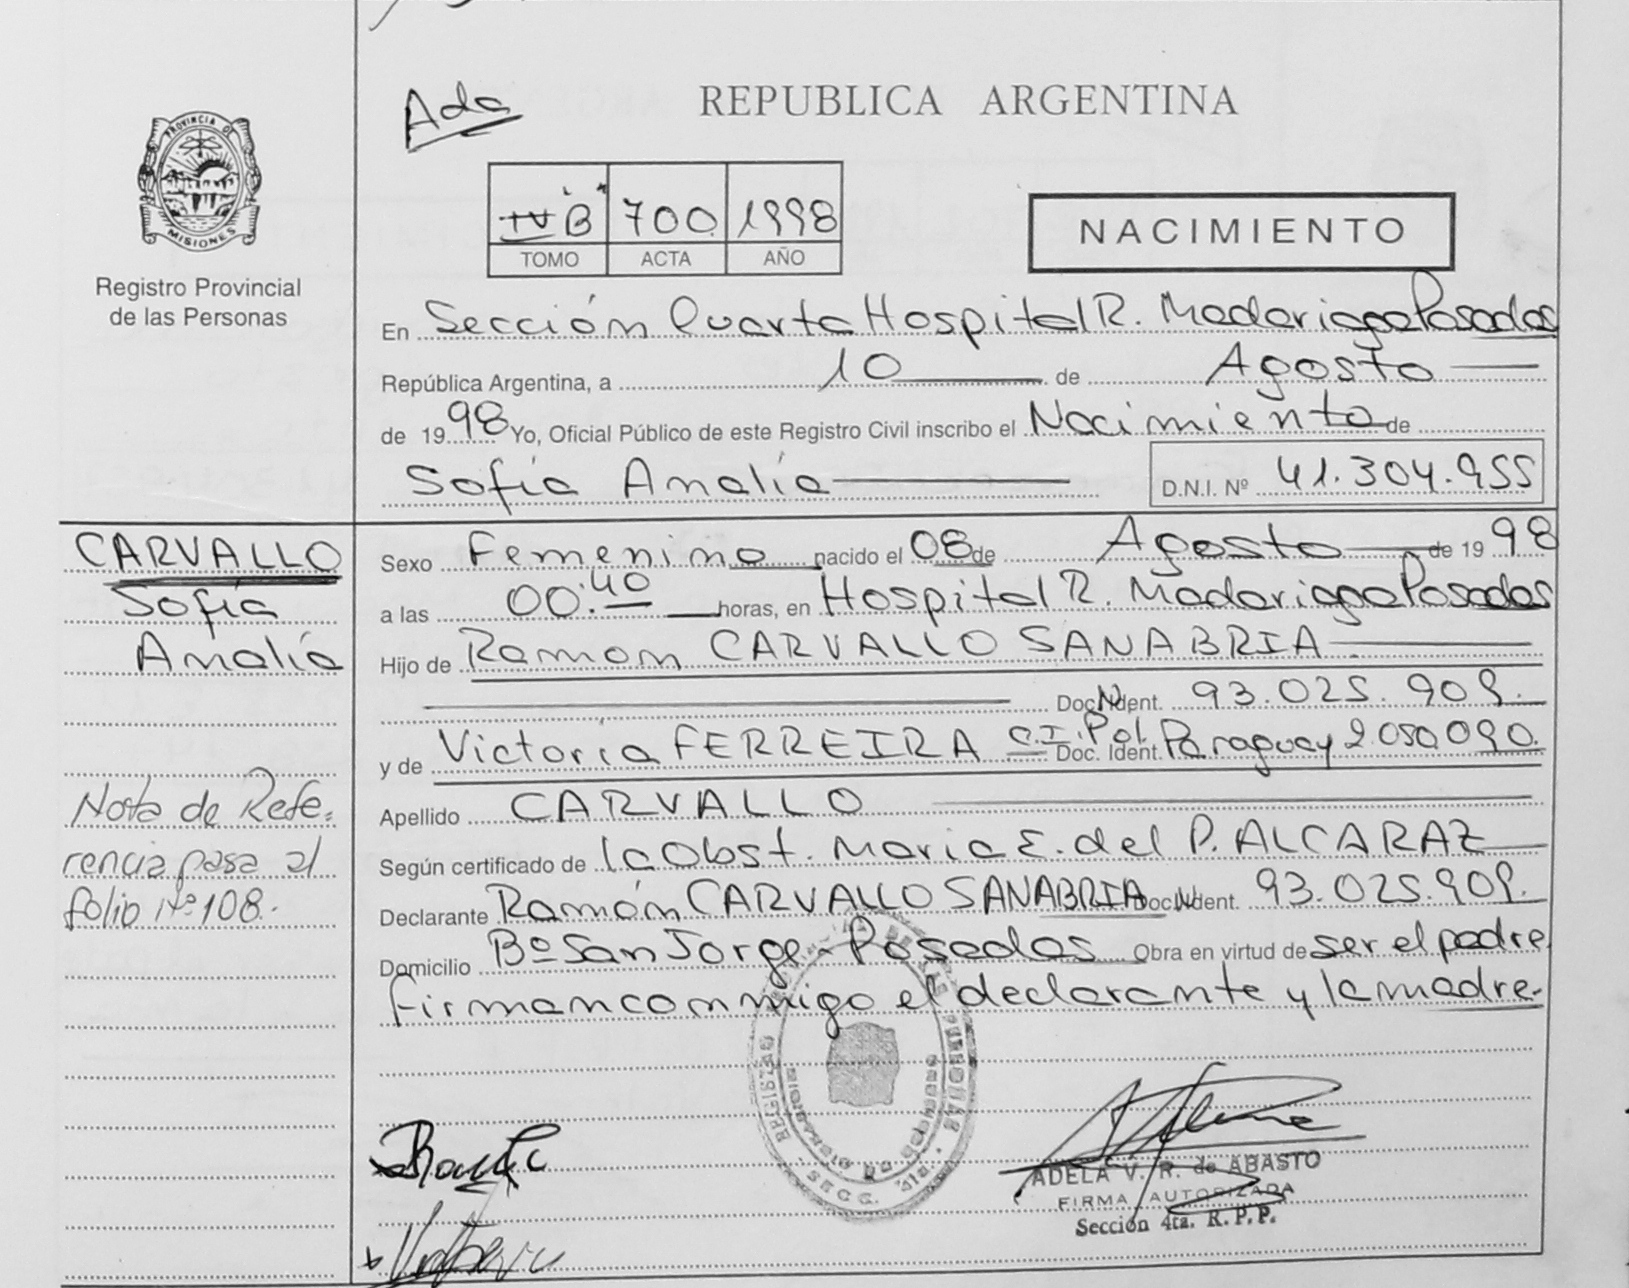 Ada
REPUBLICA ARGENTINA
PROVINCIA DE MISIONES
Registro Provincial
de las Personas
IV B 700 1998
TOMO ACTA AÑO
NACIMIENTO
En Sección Cuarta Hospital R. Madariaga Posadas
República Argentina, a 10 de Agosto
de 1998 Yo, Oficial Público de este Registro Civil inscribo el Nacimiento de
Sofía Amalia D.N.I. Nº 41.304.955
CARVALLO
Sofía
Amalia
Nota de Refe=
rencia pasa al
folio Nº 108.-
Sexo Femenino nacido el 08 de Agosto de 1998
a las 00:40 horas, en Hospital R. Madariaga Posadas
Hijo de Ramon CARVALLO SANABRIA
Doc. Ident. 93.025.909.
y de Victoria FERREIRA C.I. Pol. Doc. Ident. Paraguay 2.050.090.
Apellido CARVALLO
Según certificado de la Obst. Maria E. del P. ALCARAZ
Declarante Ramón CARVALLO SANABRIA Doc. Ident. 93.025.909.
Domicilio Bº San Jorge - Posadas Obra en virtud de ser el padre
firman conmigo el declarante y la madre.-
ADELA V. R. de ABASTO
FIRMA AUTORIZADA
Sección 4ta. R. P. P.